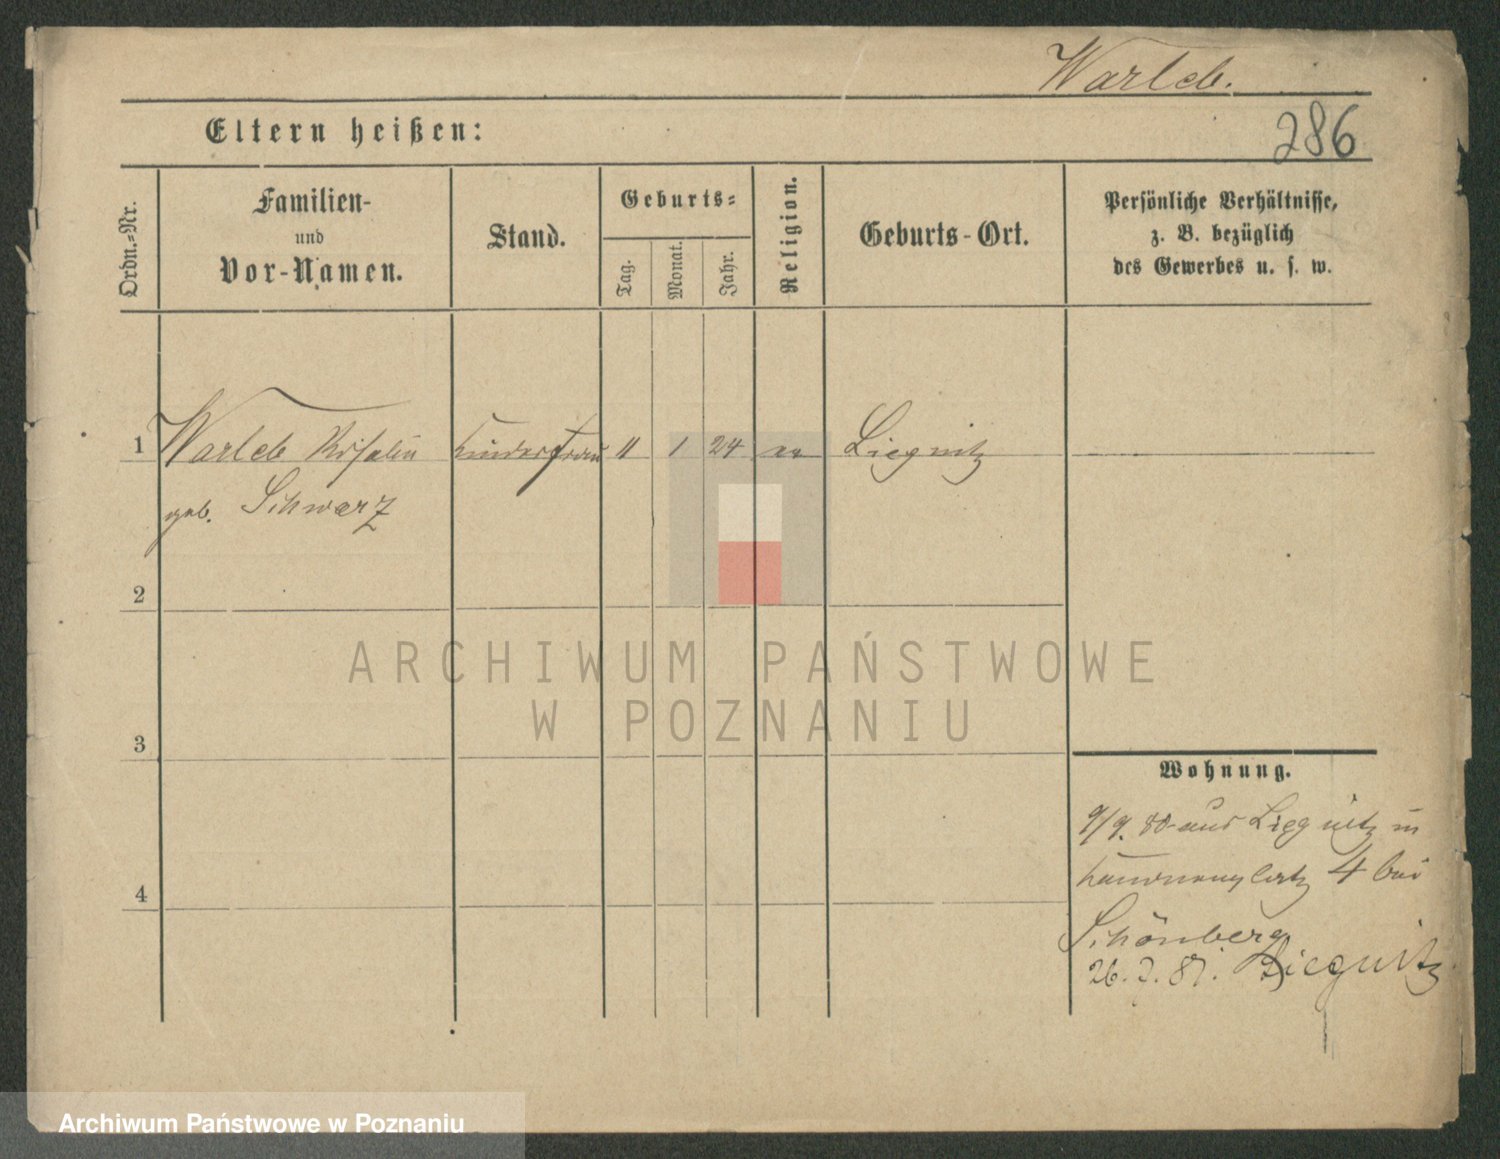 Warleb.
286
Eltern heißen:
Ordn.-Nr.
Familien-
und
Vor-Namen.
Stand.
Geburts-
Tag.
Monat.
Jahr.
Religion.
Geburts-Ort.
Persönliche Verhältnisse,
z. B. bezüglich
des Gewerbes u. s. w.
1 Warleb Rosalie Kinderfrau 11 1 24 Liegnitz
geb. Schwarz
2
3
4
Wohnung.
9/9. 80 aus Liegnitz in
4 bei
Schönberg
26. 2. 81. Liegnitz
ARCHIWUM PAŃSTWOWE
W POZNANIU
Archiwum Państwowe w Poznaniu